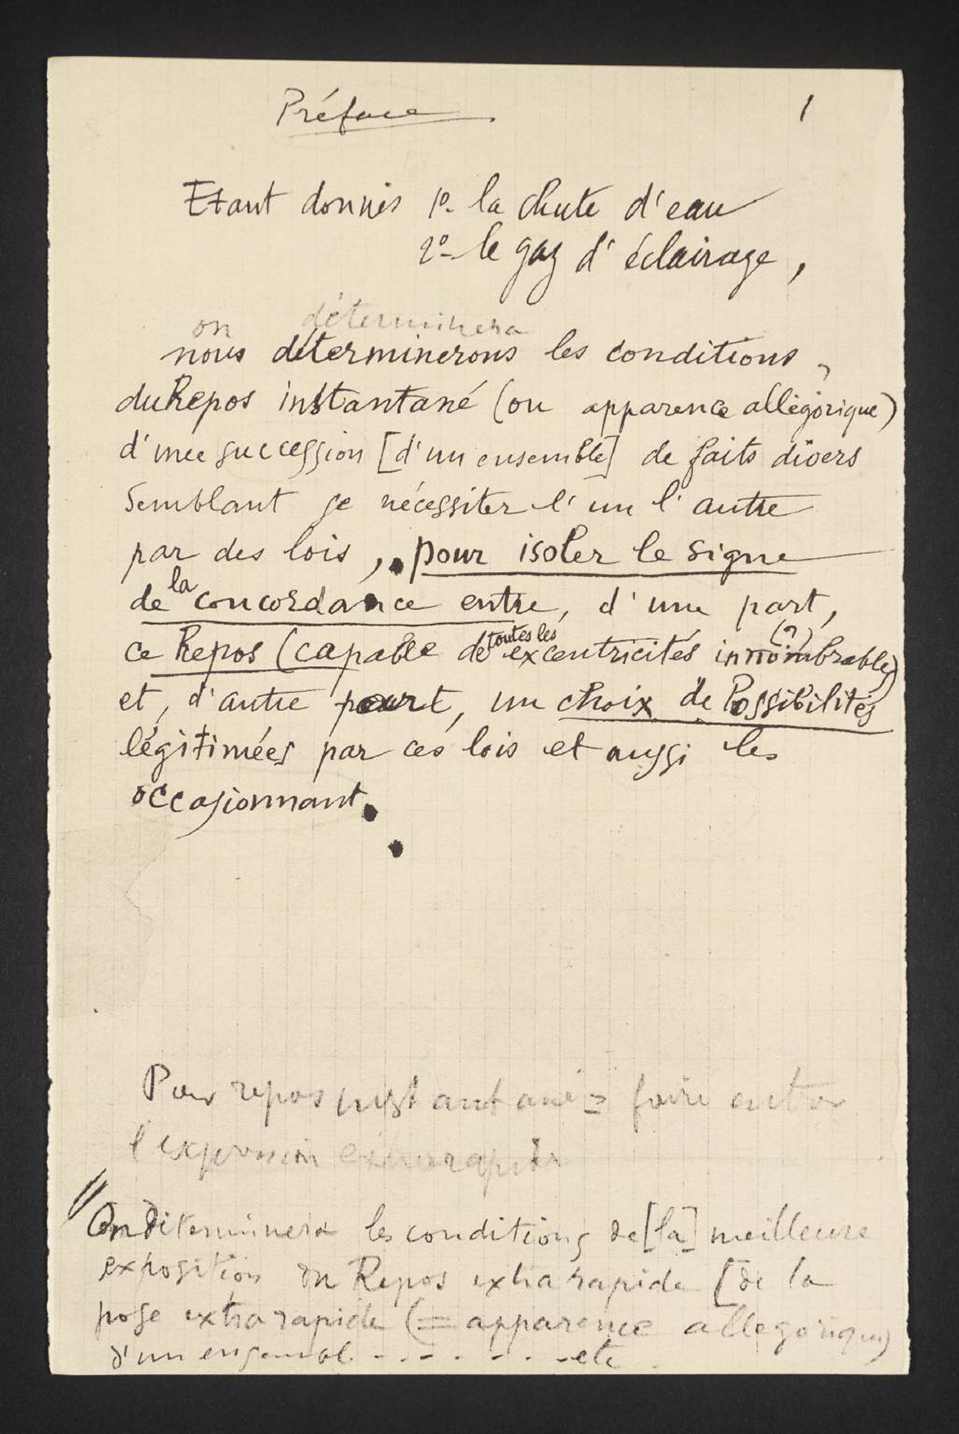 Préface 1
Etant donnés 1º- la chute d'eau
2º- le gaz d'éclairage,
on déterminera
nous déterminerons les conditions
du Repos instantané (ou apparence allégorique)
d'une succession [d'un ensemble] de faits divers
semblant se nécessiter l'un l'autre
par des lois, pour isoler le signe
de la concordance entre, d'une part,
ce Repos (capable de toutes les excentricités innombrables (?))
et, d'autre part, un choix de Possibilités
légitimées par ces lois et aussi les
occasionnant.
Pour repos instantané = faire entrer
l'expression extrarapide
On déterminera les conditions de [la] meilleure
exposition du Repos extra rapide [de la
pose extra rapide (= apparence allégorique)
d'un ensembl. - - - - - - etc